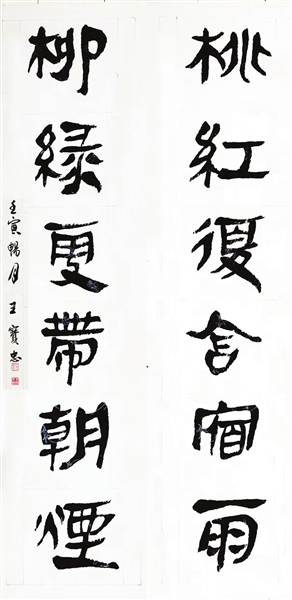 桃紅復含宿雨
柳綠更帶朝煙
壬寅暢月王寶忠